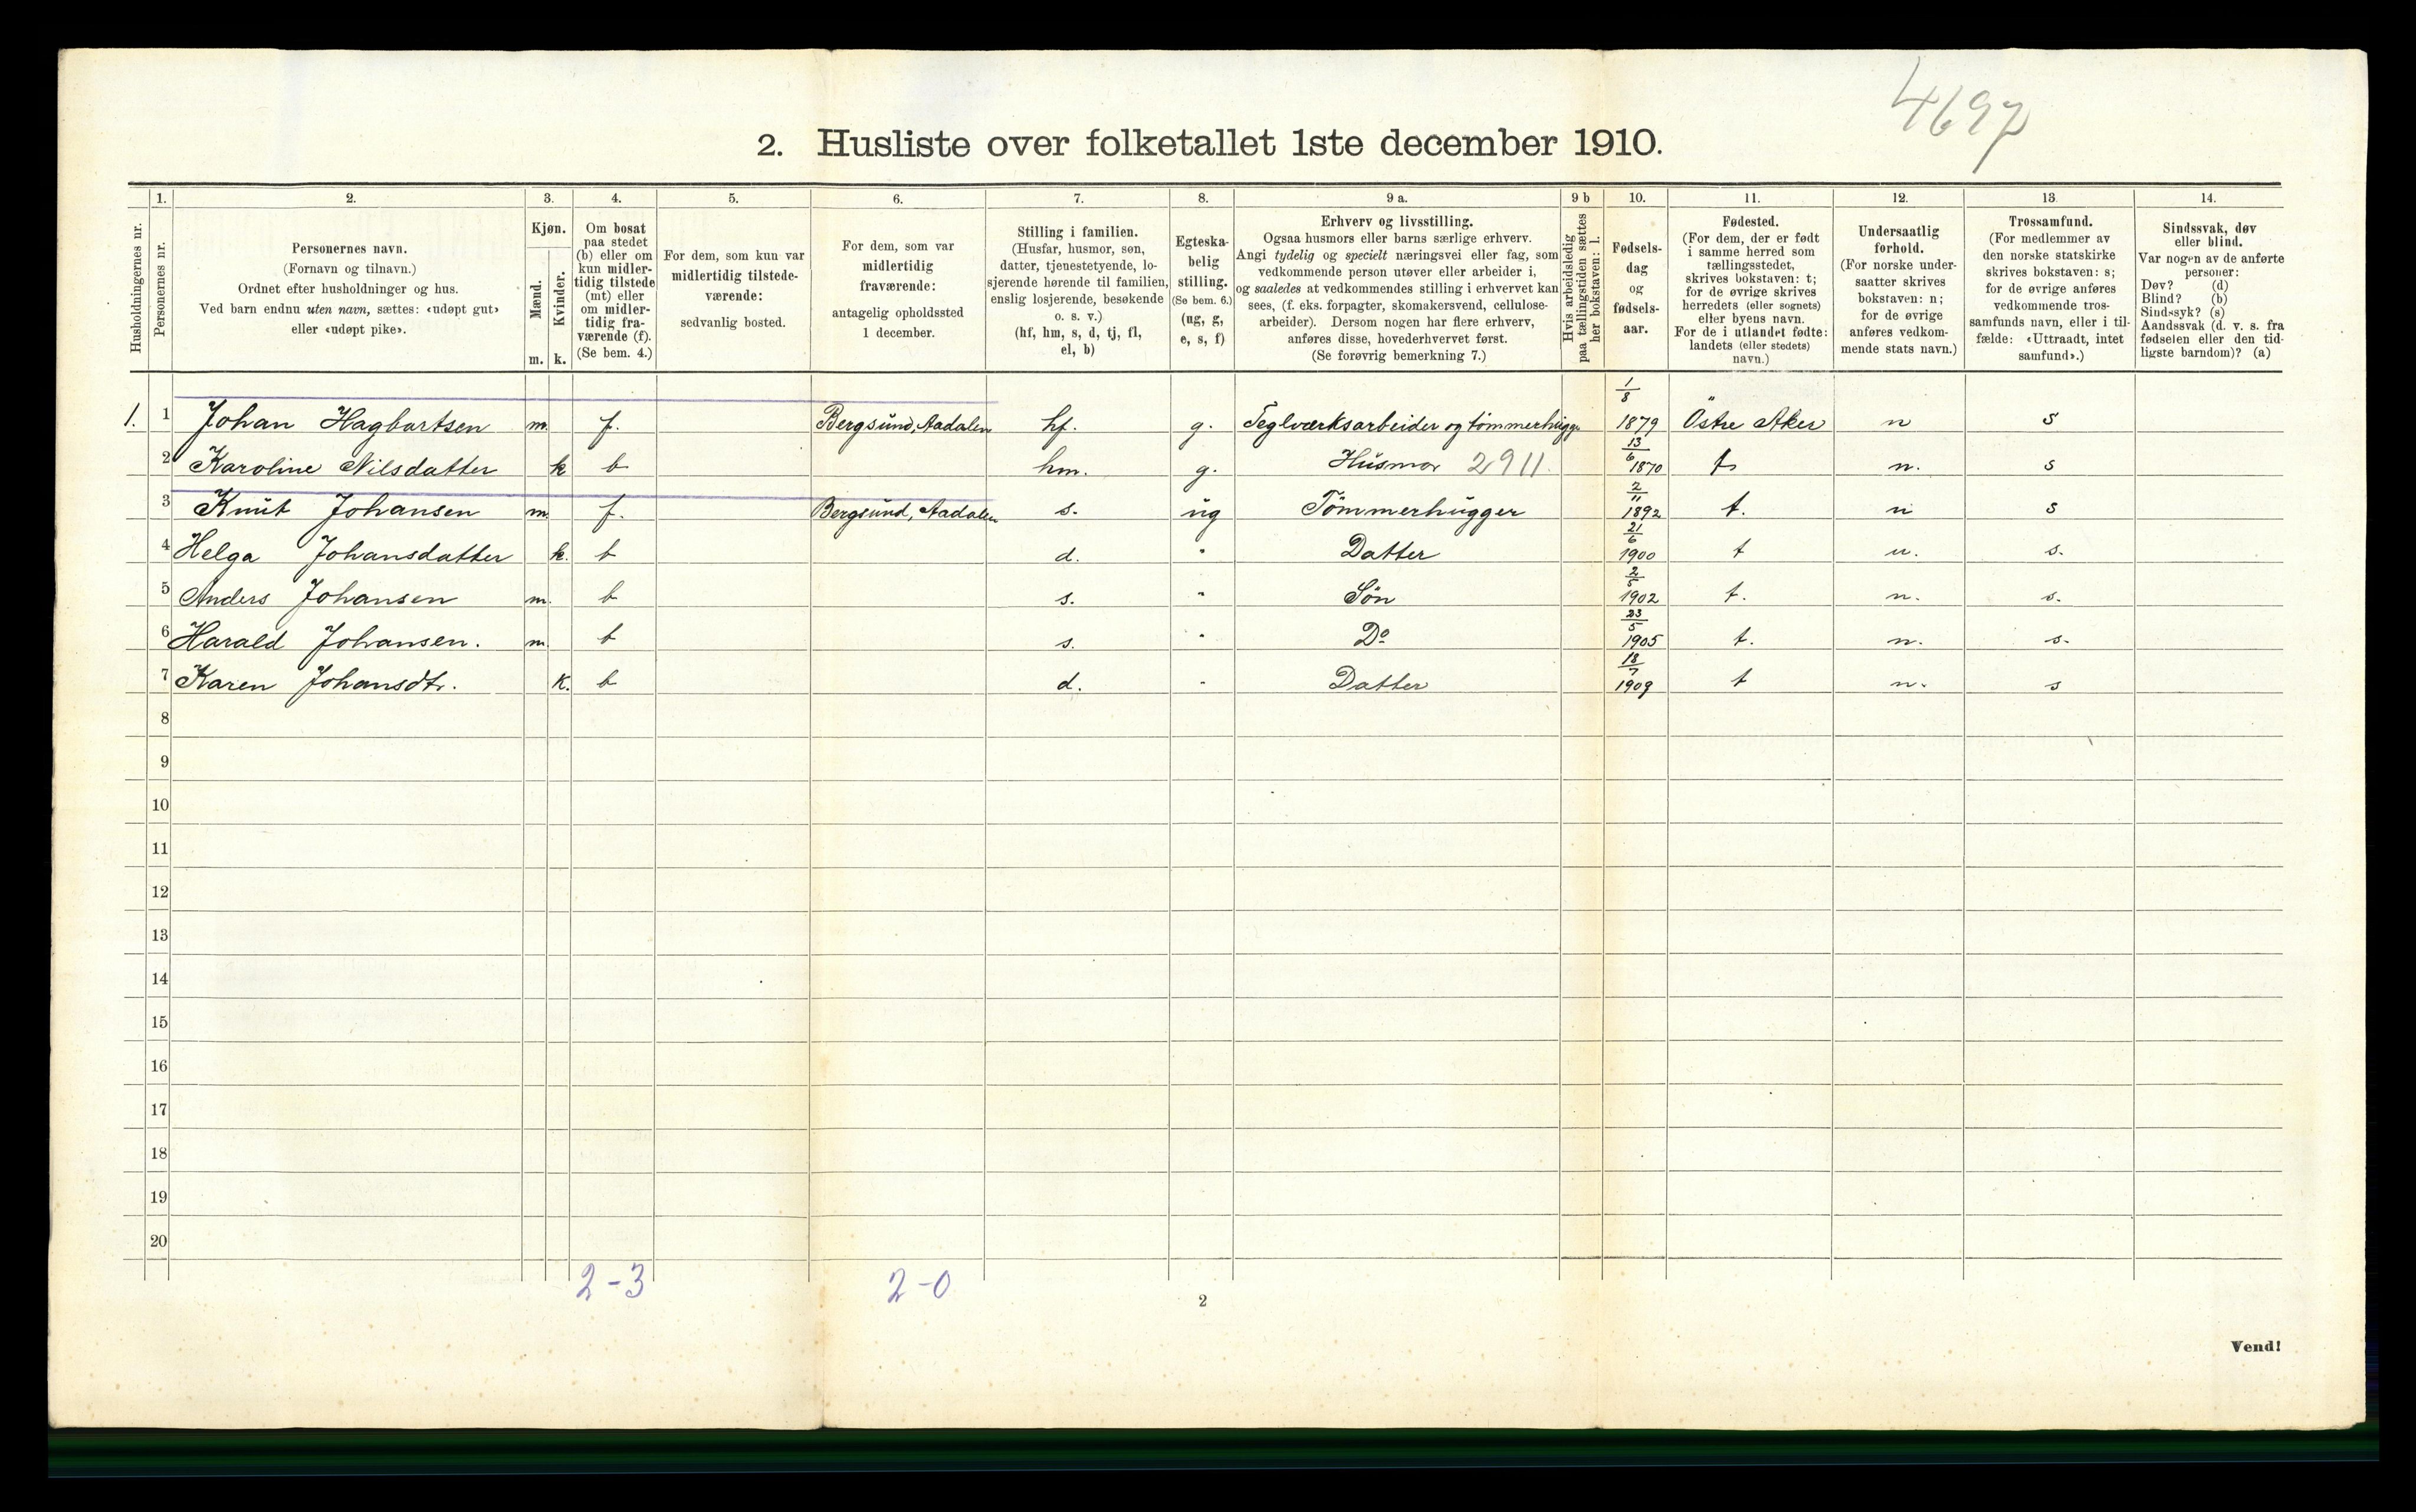 4697
2. Husliste over folketallet 1ste december 1910.
Husholdningernes nr.
1.
Personernes nr.
2.
Personernes navn.
(Fornavn og tilnavn.)
Ordnet efter husholdninger og hus.
Ved barn endnu uten navn, sættes: «udøpt gut»
eller «udøpt pike».
3.
Kjøn.
Mænd.
m.
Kvinder.
k.
4.
Om bosat
paa stedet
(b) eller om
kun midler-
tidig tilstede
(mt) eller
om midler-
tidig fra-
værende (f).
(Se bem. 4.)
5.
For dem, som kun var
midlertidig tilstede-
værende:
sedvanlig bosted.
6.
For dem, som var
midlertidig
fraværende:
antagelig opholdssted
1 december.
7.
Stilling i familien.
(Husfar, husmor, søn,
datter, tjenestetyende, lo-
sjerende hørende til familien,
enslig losjerende, besøkende
o. s. v.)
(hf, hm, s, d, tj, fl,
el, b)
8.
Egteska-
belig
stilling.
(Se bem. 6.)
(ug, g,
e, s, f)
9 a.
Erhverv og livsstilling.
Ogsaa husmors eller barns særlige erhverv.
Angi tydelig og specielt næringsvei eller fag, som
vedkommende person utøver eller arbeider i,
og saaledes at vedkommendes stilling i erhvervet kan
sees, (f. eks. forpagter, skomakersvend, cellulose-
arbeider). Dersom nogen har flere erhverv,
anføres disse, hovederhvervet først.
(Se forøvrig bemerkning 7.)
9 b
Hvis arbeidsledig
paa tællingstiden sættes
her bokstaven: l.
10.
Fødsels-
dag
og
fødsels-
aar.
11.
Fødested.
(For dem, der er født
i samme herred som
tællingsstedet,
skrives bokstaven: t;
for de øvrige skrives
herredets (eller sognets)
eller byens navn.
For de i utlandet fødte:
landets (eller stedets)
navn.)
12.
Undersaatlig
forhold.
(For norske under-
saatter skrives
bokstaven: n;
for de øvrige
anføres vedkom-
mende stats navn.)
13.
Trossamfund.
(For medlemmer av
den norske statskirke
skrives bokstaven: s;
for de øvrige anføres
vedkommende tros-
samfunds navn, eller i til-
fælde: «Uttraadt, intet
samfund».)
14.
Sindssvak, døv
eller blind.
Var nogen av de anførte
personer:
Døv? (d)
Blind? (b)
Sindssyk? (s)
Aandssvak (d. v. s. fra
fødselen eller den tid-
ligste barndom)? (a)
1. 1 Johan Hagbartsen m. f. Bergsund, Aadalen hf. g. Teglværksarbeider og tømmerhugge 1/8 1879 Östre Aker n s
2 Karoline Nilsdatter k b hm. g. Husmor 2911. 13/6 1870 t n. s
3 Knut Johansen m. f. Bergsund, Aadalen s. ug Tömmerhugger 2/11 1892 t. n s
4 Helga Johansdatter k. b d. " Datter 21/6 1900 t n. s.
5 Anders Johansen m. b s. " Søn 2/5 1902 t. n. s.
6 Harald Johansen. m. b s. " Do 23/5 1905 t. n. s.
7 Karen Johansdtr. k. b d. " Datter 18/7 1909 t n. s
8
9
10
11
12
13
14
15
16
17
18
19
20
2-3 2-0
2
Vend!